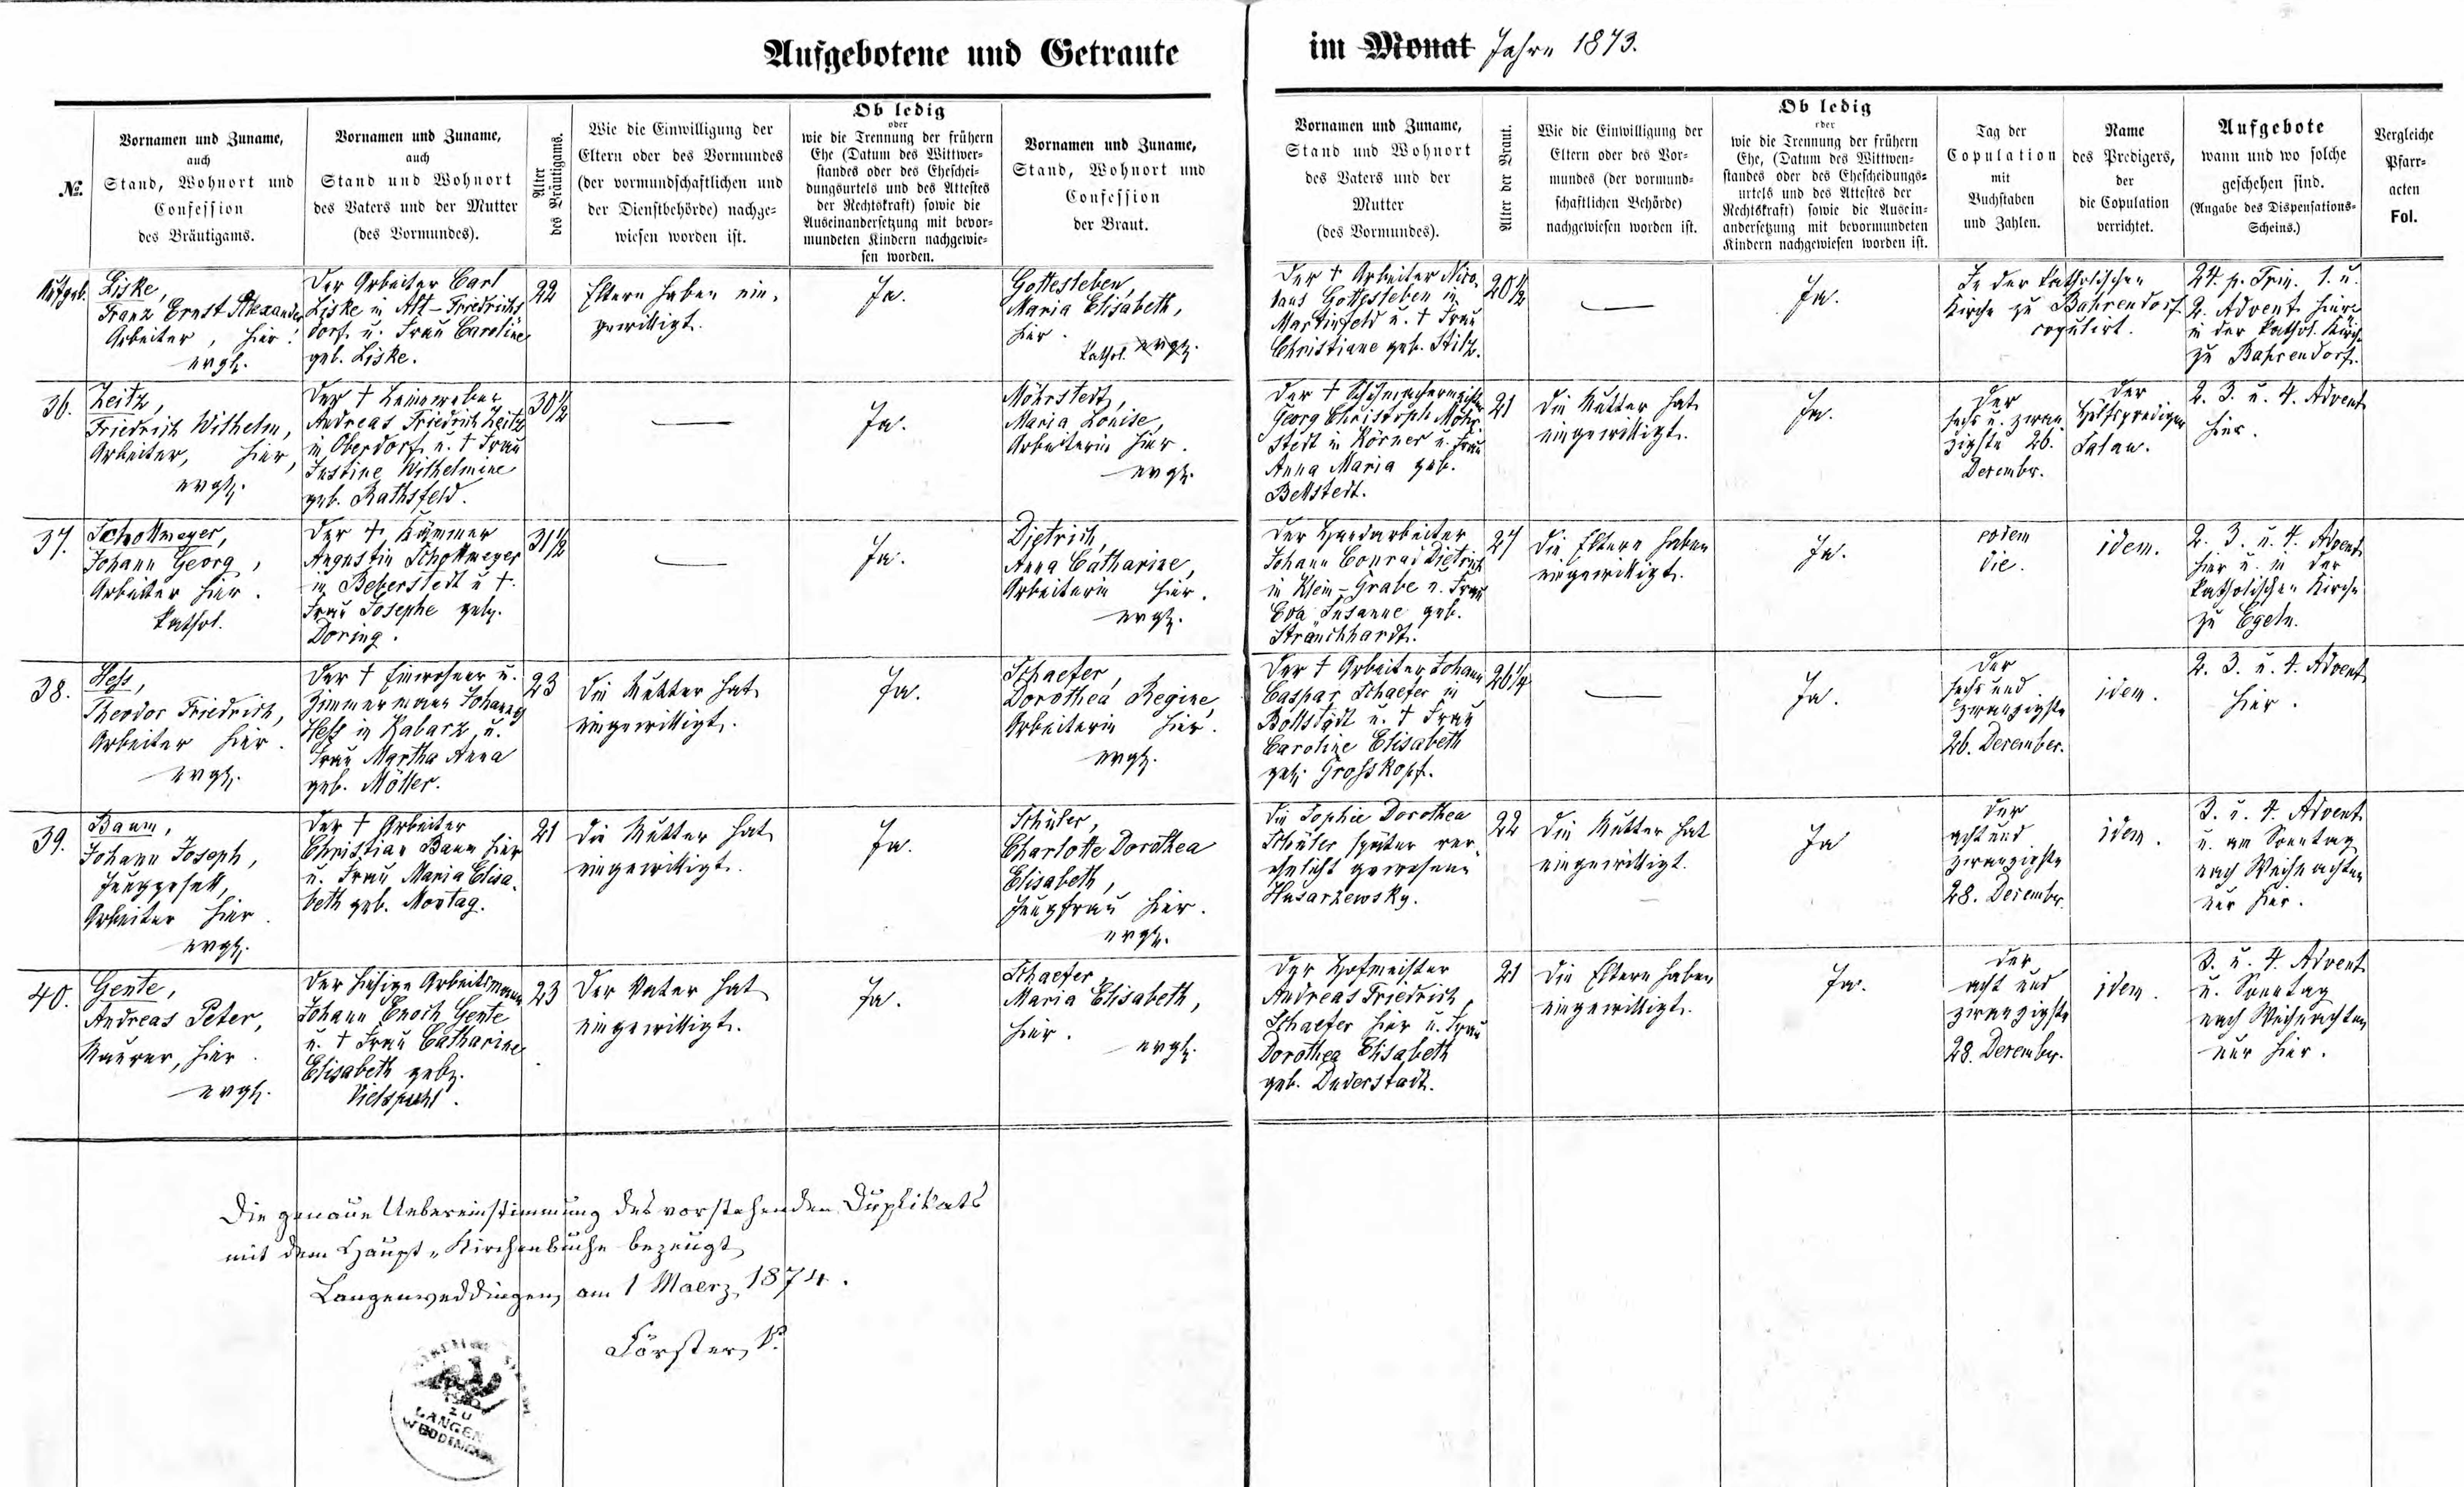 Aufgebotene und Getraute im Monat Jahre 1873.
№.
Vornamen und Zuname,
auch
Stand, Wohnort und
Confession
des Bräutigams.
Vornamen und Zuname,
auch
Stand und Wohnort
des Vaters und der Mutter
(des Vormundes).
Alter
des Bräutigams.
Wie die Einwilligung der
Eltern oder des Vormundes
(der vormundschaftlichen und
der Dienstbehörde) nachge-
wiesen worden ist.
Ob ledig
oder
wie die Trennung der frühern
Ehe (Datum des Wittwer-
standes oder des Ehescheidungsurtels und des Attestes
der Rechtskraft) sowie die
Auseinandersetzung mit bevor-
mundeten Kindern nachgewie-
sen worden.
Vornamen und Zuname,
Stand, Wohnort und
Confession
der Braut.
Vornamen und Zuname,
Stand und Wohnort
des Vaters und der
Mutter
(des Vormundes).
Alter der Braut.
Wie die Einwilligung der
Eltern oder des Vor-
mundes (der vormund-
schaftlichen Behörde)
nachgewiesen worden ist.
Ob ledig
oder
wie die Trennung der frühern
Ehe, (Datum des Wittwen-
standes oder des Ehescheidungs-
urtels und des Attestes der
Rechtskraft) sowie die Ausein-
andersetzung mit bevormundeten
Kindern nachgewiesen worden ist.
Tag der
Copulation
mit
Buchstaben
und Zahlen.
Name
des Predigers,
der
die Copulation
verrichtet.
Aufgebote
wann und wo solche
geschehen sind.
(Angabe des Dispensations-
Scheins.)
Vergleiche
Pfarr-
acten
Fol.
Aufgeb.
Liske,
Franz Ernst Alexander
Arbeiter, hier.
evgl.
Der Arbeiter Carl
Liske in Alt-Friedrichs
dorf u. Frau Caroline
geb. Liske.
22
Eltern haben ein-
gewilligt.
Ja.
Gottesleben,
Maria Elisabeth,
hier.
kathol. evgl.
Der † Arbeiter Nico-
laus Gottesleben in
Martinfeld u. † Frau
Christiane geb. Stilz.
20½
—
Ja.
In der katholischen
Kirche zu Bahrendorf
copulirt.
24. p. Trin. 1. u.
2. Advent hier u.
in der kathol. Kirche
zu Bahrendorf.
36.
Zeitz,
Friedrich Wilhelm,
Arbeiter, hier,
evgl.
Der † Leineweber
Andreas Friedrich Zeitz
in Oberdorf u. † Frau
Justine Wilhelmine
geb. Rathsfeld.
30½
—
Ja.
Möhrstedt,
Maria Louise,
Arbeiterin hier.
evgl.
Der † Schuhmachermeister
Georg Christoph Möhr-
stedt in Körner u. Frau
Anna Maria geb.
Bellstedt.
21
Die Mutter hat
eingewilligt.
Ja.
Der
sechs u. zwan
zigste 26.
December.
Der
Hülfsprediger
2. 3. u. 4. Advent
hier.
37.
Schollmeyer,
Johann Georg,
Arbeiter hier.
kathol.
Der †
Augustin Schollmeyer
in Beberstedt u †.
Frau Josephe geb.
Döring.
31½
—
Ja.
Dietrich,
Anna Catharine,
Arbeiterin hier.
evgl.
Der Handarbeiter
Johann Conrad Dietrich
in Klein-Grabe u. Frau
Eva Susanne geb.
Sträuchhardt.
27
Die Eltern haben
eingewilligt.
Ja.
eodem
die.
idem.
2. 3. u. 4. Advent
hier u. in der
katholischen Kirche
zu Egeln.
38.
Hess,
Theodor Friedrich,
Arbeiter hier.
evgl.
Der † Einwohner u.
Zimmermann Johannes
Hess in Kabarz, u.
Frau Martha Anna
geb. Möller.
23
Die Mutter hat
eingewilligt.
Ja.
Schaefer,
Dorothea Regine,
Arbeiterin hier.
evgl.
Der † Arbeiter Johann
Caspar Schaefer in
Bollstädt u. † Frau
Caroline Elisabeth
geb. Grosskopf.
26¼
—
Ja.
Der
sechs und
zwanzigste
26. December.
idem.
2. 3. u. 4. Advent
hier.
39.
Baum,
Johann Joseph,
Junggesell,
Arbeiter hier.
evgl.
Der † Arbeiter
Christian Baum hier
u. Frau Maria Elisa-
beth geb. Montag.
21
Die Mutter hat
eingewilligt.
Ja.
Schüler,
Charlotte Dorothea
Elisabeth,
Jungfrau hier.
evgl.
Die Sophie Dorothea
Schüler später ver-
ehelicht gewesene
Husarzewsky.
22
Die Mutter hat
eingewilligt.
Ja
Der
acht und
zwanzigste
28. December.
idem.
3. u. 4. Advent
u. am Sonntag
nach Weihnachten
nur hier.
40.
Gente,
Andreas Peter,
Maurer, hier.
evgl.
Der hiesige Arbeitsmann
Johann Enoch Gente
u. † Frau Catharine
Elisabeth geb.
23
Der Vater hat
eingewilligt.
Ja.
Schaefer,
Maria Elisabeth,
hier.
evgl.
Der Hofmeister
Andreas Friedrich
Schaefer hier u. Frau
Dorothea Elisabeth
geb. Duderstadt.
21
Die Eltern haben
eingewilligt.
Ja.
Der
acht und
zwanzigste
28. December.
idem.
3. u. 4. Advent
u. Sonntag
nach Weihnachten
nur hier.
Die genaue Uebereinstimmung des vorstehenden Duplikats
mit dem Haupt-Kirchenbuche bezeugt
Langenweddingen, am 1 Maerz 1874.
Förster, P.
ZU
LANGEN
WEDDINGEN